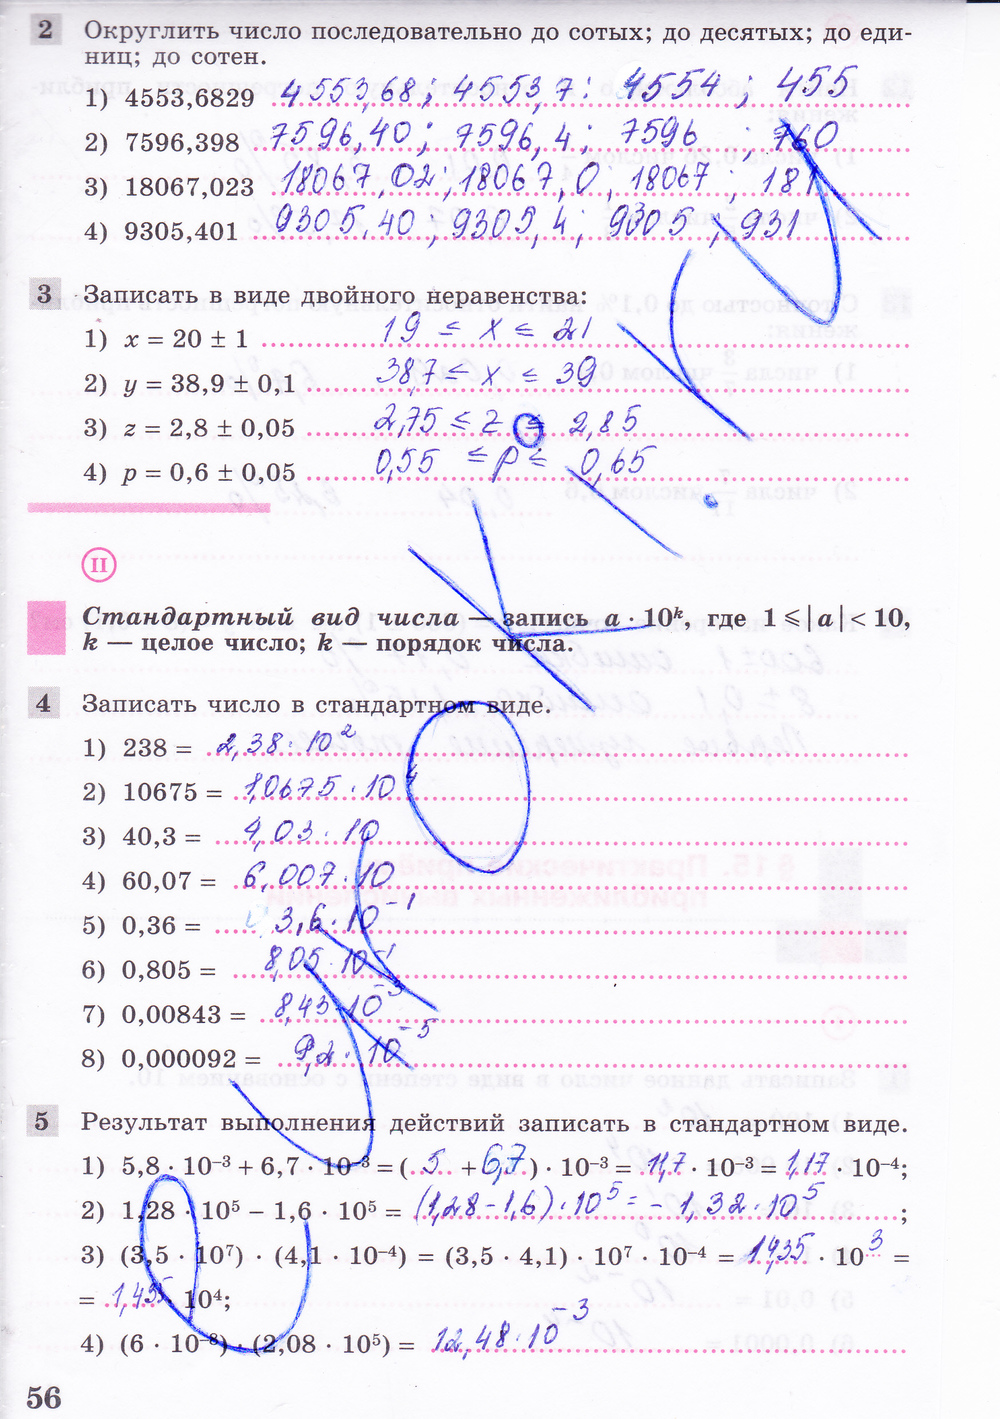 2 Округлить число последовательно до сотых; до десятых; до еди-
ниц; до сотен.
1) 4553,6829 4553,68; 4553,7; 4554; 455
2) 7596,398 7596,40; 7596,4; 7596 ; 760
3) 18067,023 18067,02; 18067,0; 18067; 181
4) 9305,401 9305,40; 9305,4; 9305; 931
3 Записать в виде двойного неравенства:
1) x = 20 ± 1 19 ≤ x ≤ 21
2) y = 38,9 ± 0,1 38,7 ≤ x ≤ 39
3) z = 2,8 ± 0,05 2,75 ≤ z ≤ 2,85
4) p = 0,6 ± 0,05 0,55 ≤ p ≤ 0,65
II
Стандартный вид числа — запись a · 10ᵏ, где 1 ⩽ |a| < 10,
k — целое число; k — порядок числа.
4 Записать число в стандартном виде.
1) 238 = 2,38 · 10²
2) 10675 = 1,0675 · 10⁴
3) 40,3 = 4,03 · 10
4) 60,07 = 6,007 · 10
5) 0,36 = 3,6 · 10⁻¹
6) 0,805 = 8,05 · 10⁻¹
7) 0,00843 = 8,43 · 10⁻³
8) 0,000092 = 9,2 · 10⁻⁵
5 Результат выполнения действий записать в стандартном виде.
1) 5,8 · 10⁻³ + 6,7 · 10⁻³ = ( 5 + 6,7 ) · 10⁻³ = 11,7 · 10⁻³ = 1,17 · 10⁻⁴;
2) 1,28 · 10⁵ – 1,6 · 10⁵ = (1,28 - 1,6) · 10⁵ = - 1,32 · 10⁵ ;
3) (3,5 · 10⁷) · (4,1 · 10⁻⁴) = (3,5 · 4,1) · 10⁷ · 10⁻⁴ = 14,35 · 10³ =
= 1,435 · 10⁴;
4) (6 · 10⁻⁸) · (2,08 · 10⁵) = 12,48 · 10⁻³
56